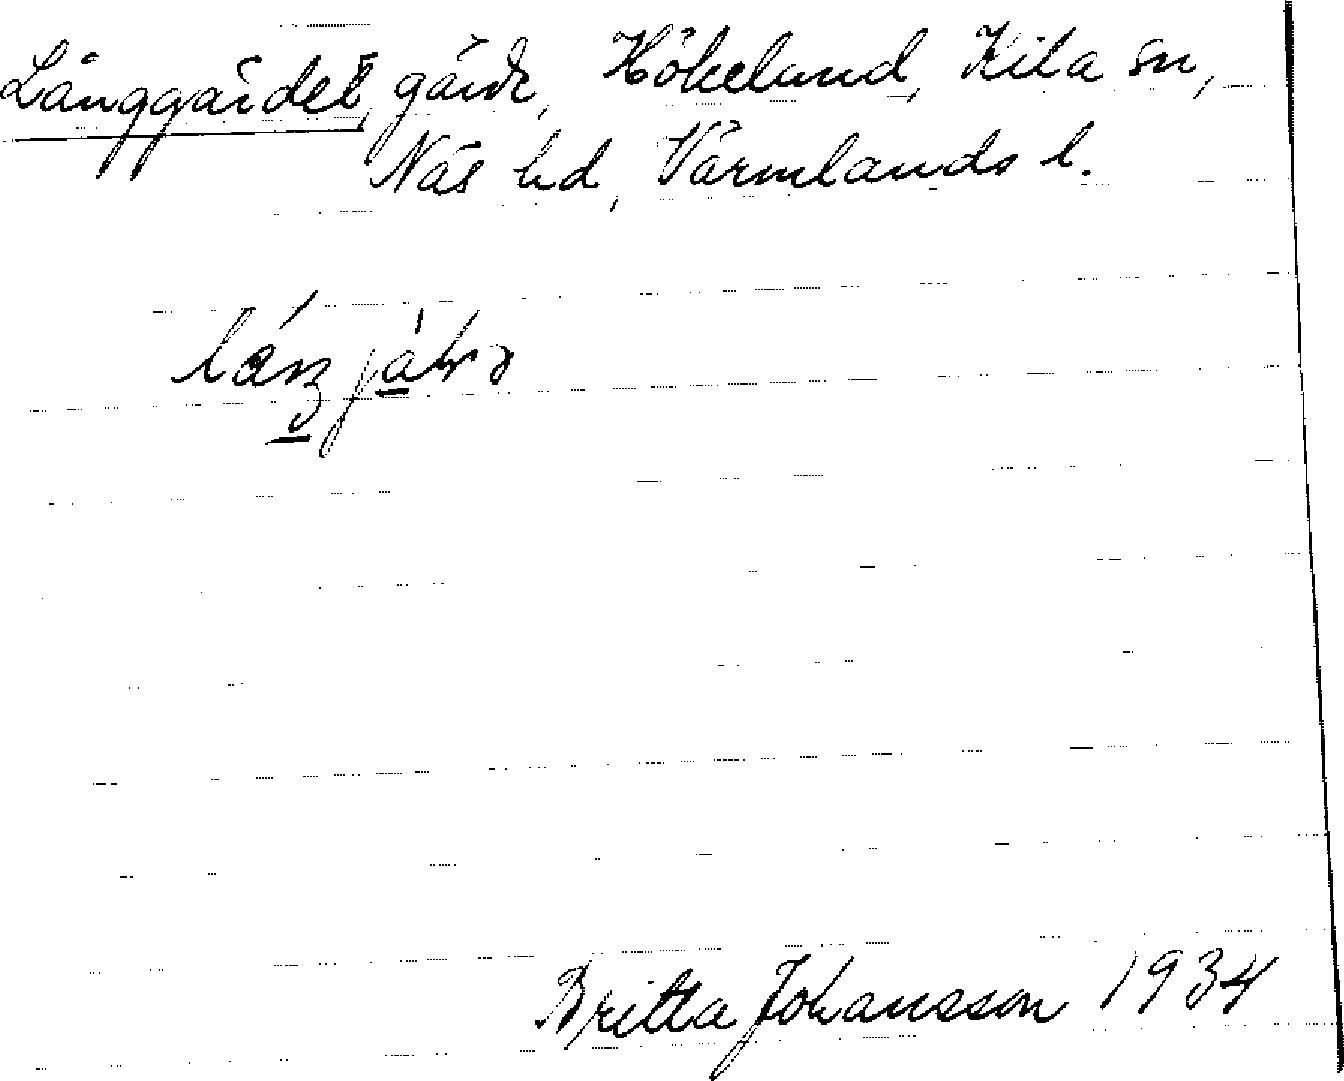 Långgärdet, gärde, Hökelund, Kila sn,
Näs hd, Värmlands l.
Britta Johansson 1934